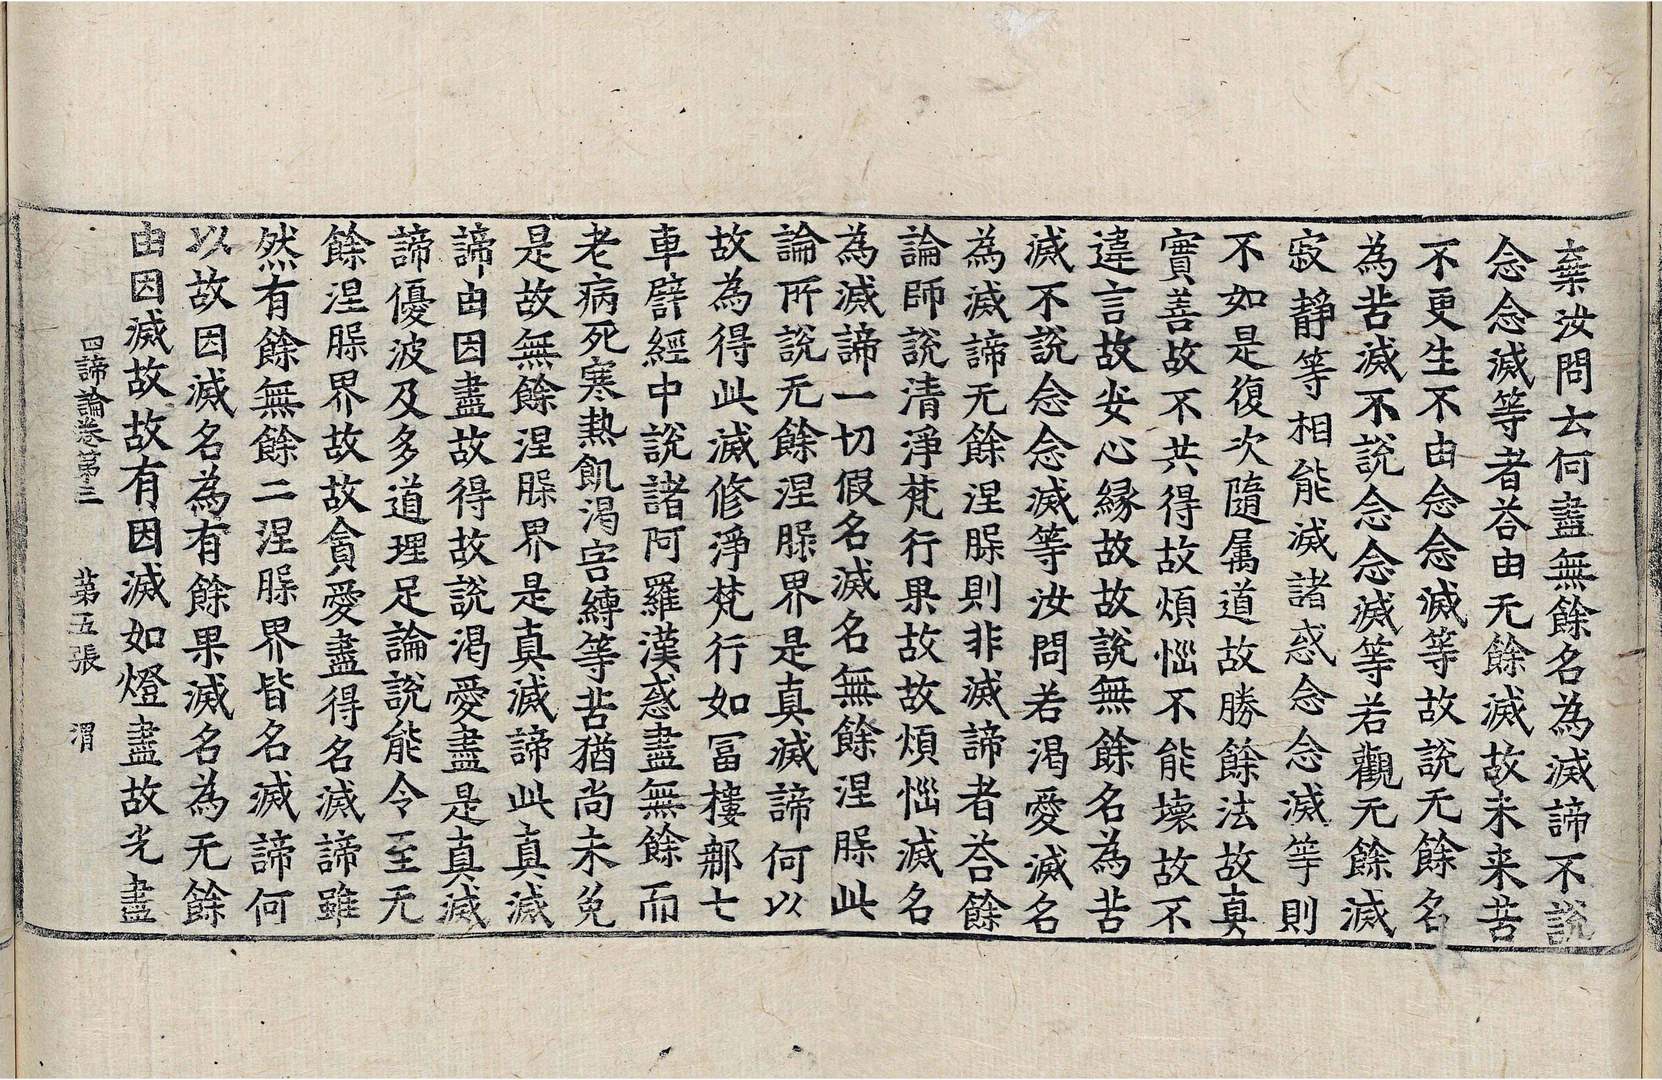 棄汝問云何盡無餘名為滅諦不說
念念滅等者荅由无餘滅故未来苦
不更生不由念念滅等故說无餘名
為苦滅不說念念滅等若觀无餘滅
寂靜等相能滅諸惑念念滅等則
不如是復次隨属道故勝餘法故真
實善故不共得故煩惱不能壞故不
違言故安心縁故故說無餘名為苦
滅不說念念滅等汝問若渴愛滅名
為滅諦无餘涅脲則非滅諦者荅餘
論師說清淨梵行果故故煩惱滅名
為滅諦一切假名滅名無餘涅脲此
論所說无餘涅脲界是真滅諦何以
故為得此滅修淨梵行如冨樓那七
車譬經中說諸阿羅漢惑盡無餘而
老病死寒熱飢渴害縛等苦猶尚未免
是故無餘涅脲界是真滅諦此真滅
諦由因盡故得故說渴愛盡是真滅
諦優波及多道理足論說能令至无
餘涅脲界故故貪愛盡得名滅諦雖
然有餘無餘二涅脲界皆名滅諦何
以故因滅名為有餘果滅名為无餘
由因滅故故有因滅如燈盡故光盡
四諦論卷第三 第五張 渭